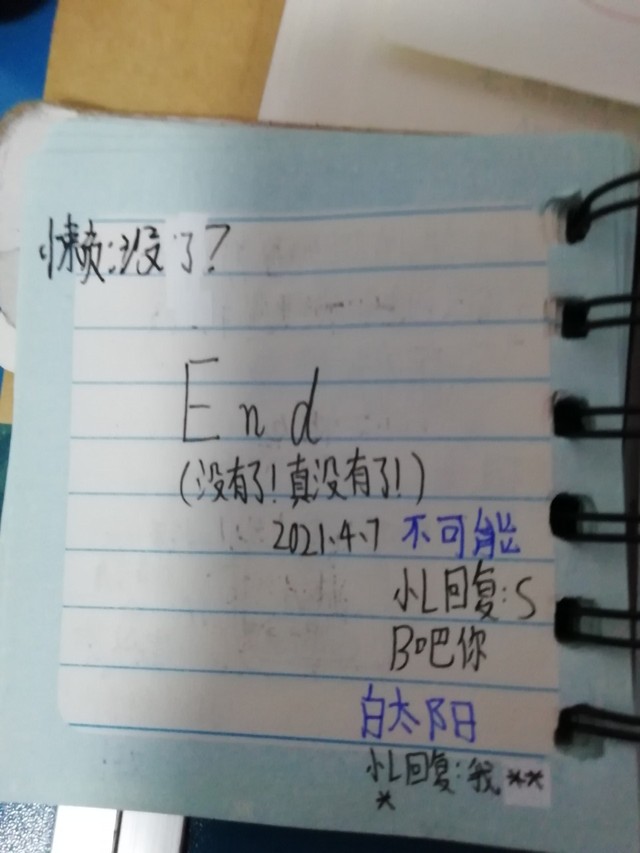 懒:没了?
End
(没有了!真没有了!)
2021.4.7 不可能
小L回复:S
B吧你
白太阳
小L回复:我**
*